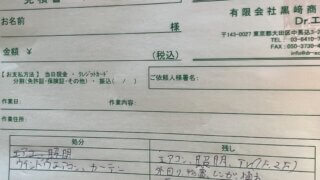 見積書
有限会社黒﨑商
Dr.エ
〒143-0027 東京都大田区中馬込3-
TEL: 03-6410-7
FAX: 050-3730-4
http://dr-
様
金額 ¥ (税込)
【お支払方法】 当日現金・クレジットカード
分割(免許証・保険証・その他)・振込( / )
ご依頼人様署名:
作業日:
作業住所:
処分 残し
エアコン、照明 エアコン、照明、テレビ(1F,2F)
ウインドウエアコン、カーテン 外回り